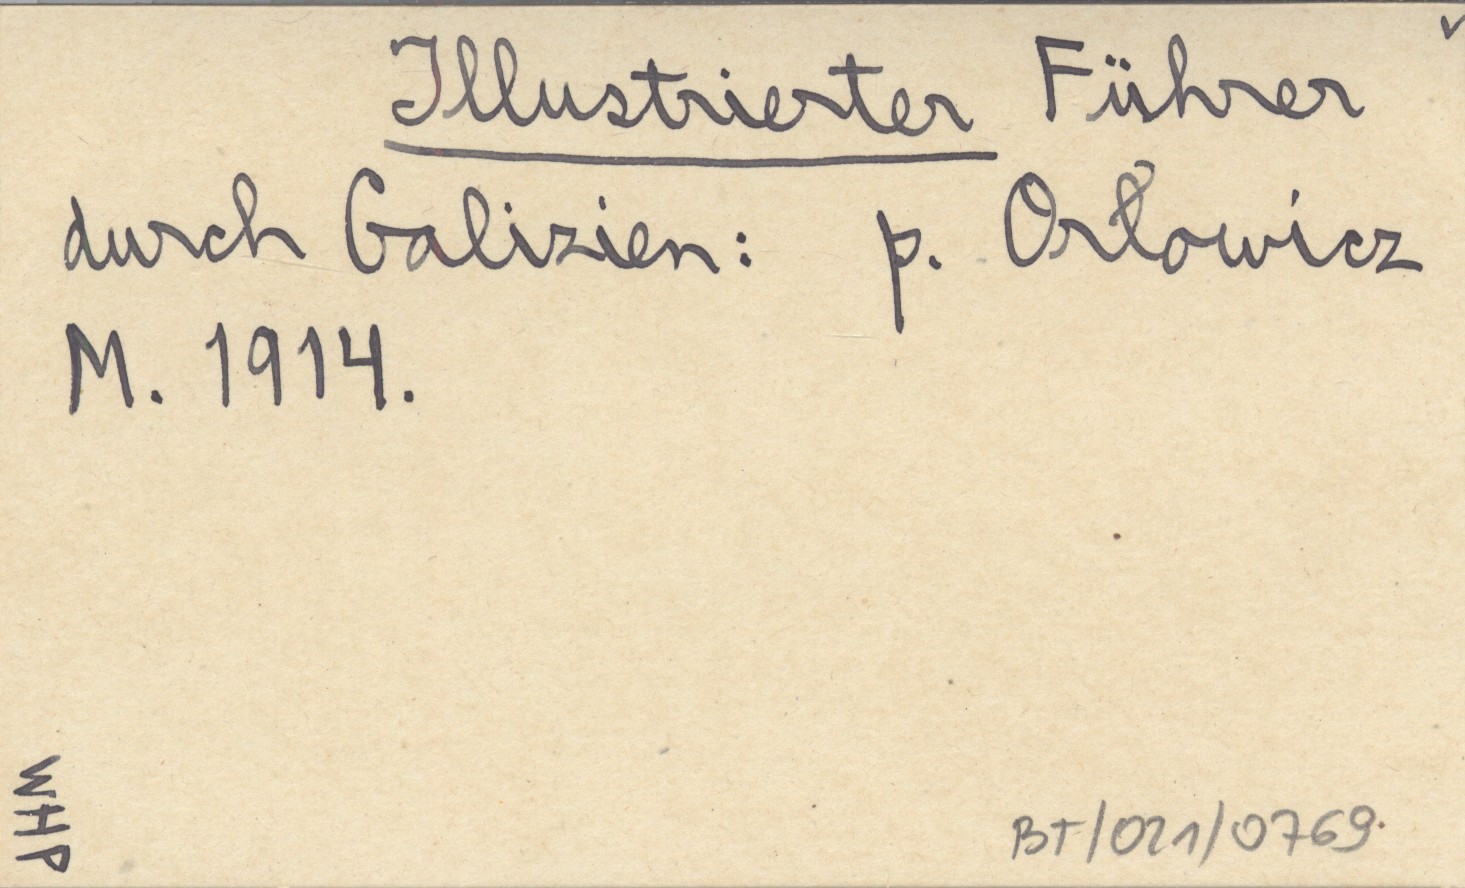 Illustrierter Führer
durch Galizien: p. Orłowicz
M. 1914.
WHP
BT/021/0769.